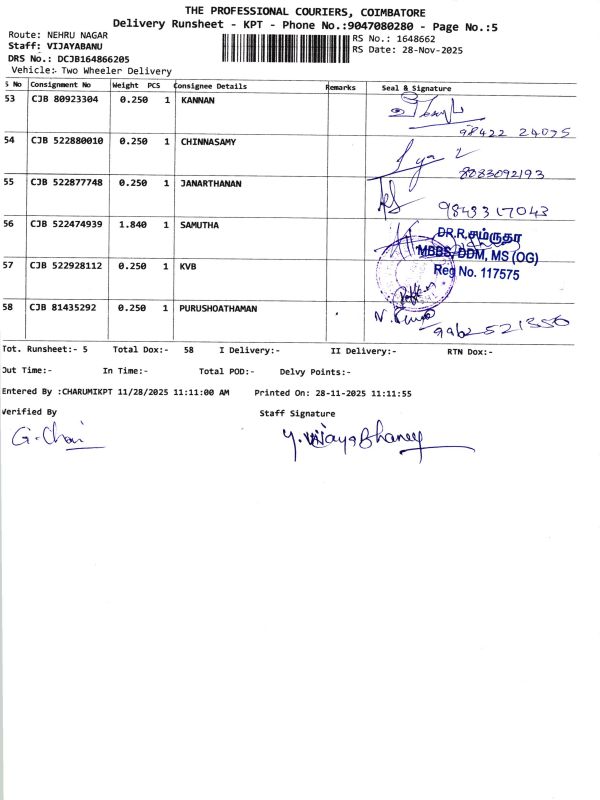 THE PROFESSIONAL COURIERS, COIMBATORE
Delivery Runsheet - KPT - Phone No.:9047080280 - Page No.:5
Route: NEHRU NAGAR
RS No.: 1648662
Staff: VIJAYABANU
RS Date: 28-Nov-2025
DRS No.: DCJB164866205
Vehicle:- Two Wheeler Delivery
S No Consignment No Weight PCS Consignee Details Remarks Seal & Signature
53 CJB 80923304 0.250 1 KANNAN
98422 24075
54 CJB 522880010 0.250 1 CHINNASAMY
8083092193
55 CJB 522877748 0.250 1 JANARTHANAN
9843317043
56 CJB 522474939 1.840 1 SAMUTHA
DR.R.சம்ருதா
MBBS, DDM, MS (OG)
Reg No. 117575
57 CJB 522928112 0.250 1 KVB
58 CJB 81435292 0.250 1 PURUSHOATHAMAN
9962521356
Tot. Runsheet:- 5 Total Dox:- 58 I Delivery:- II Delivery:- RTN Dox:-
Out Time:- In Time:- Total POD:- Delvy Points:-
Entered By :CHARUMIKPT 11/28/2025 11:11:00 AM Printed On: 28-11-2025 11:11:55
Verified By Staff Signature